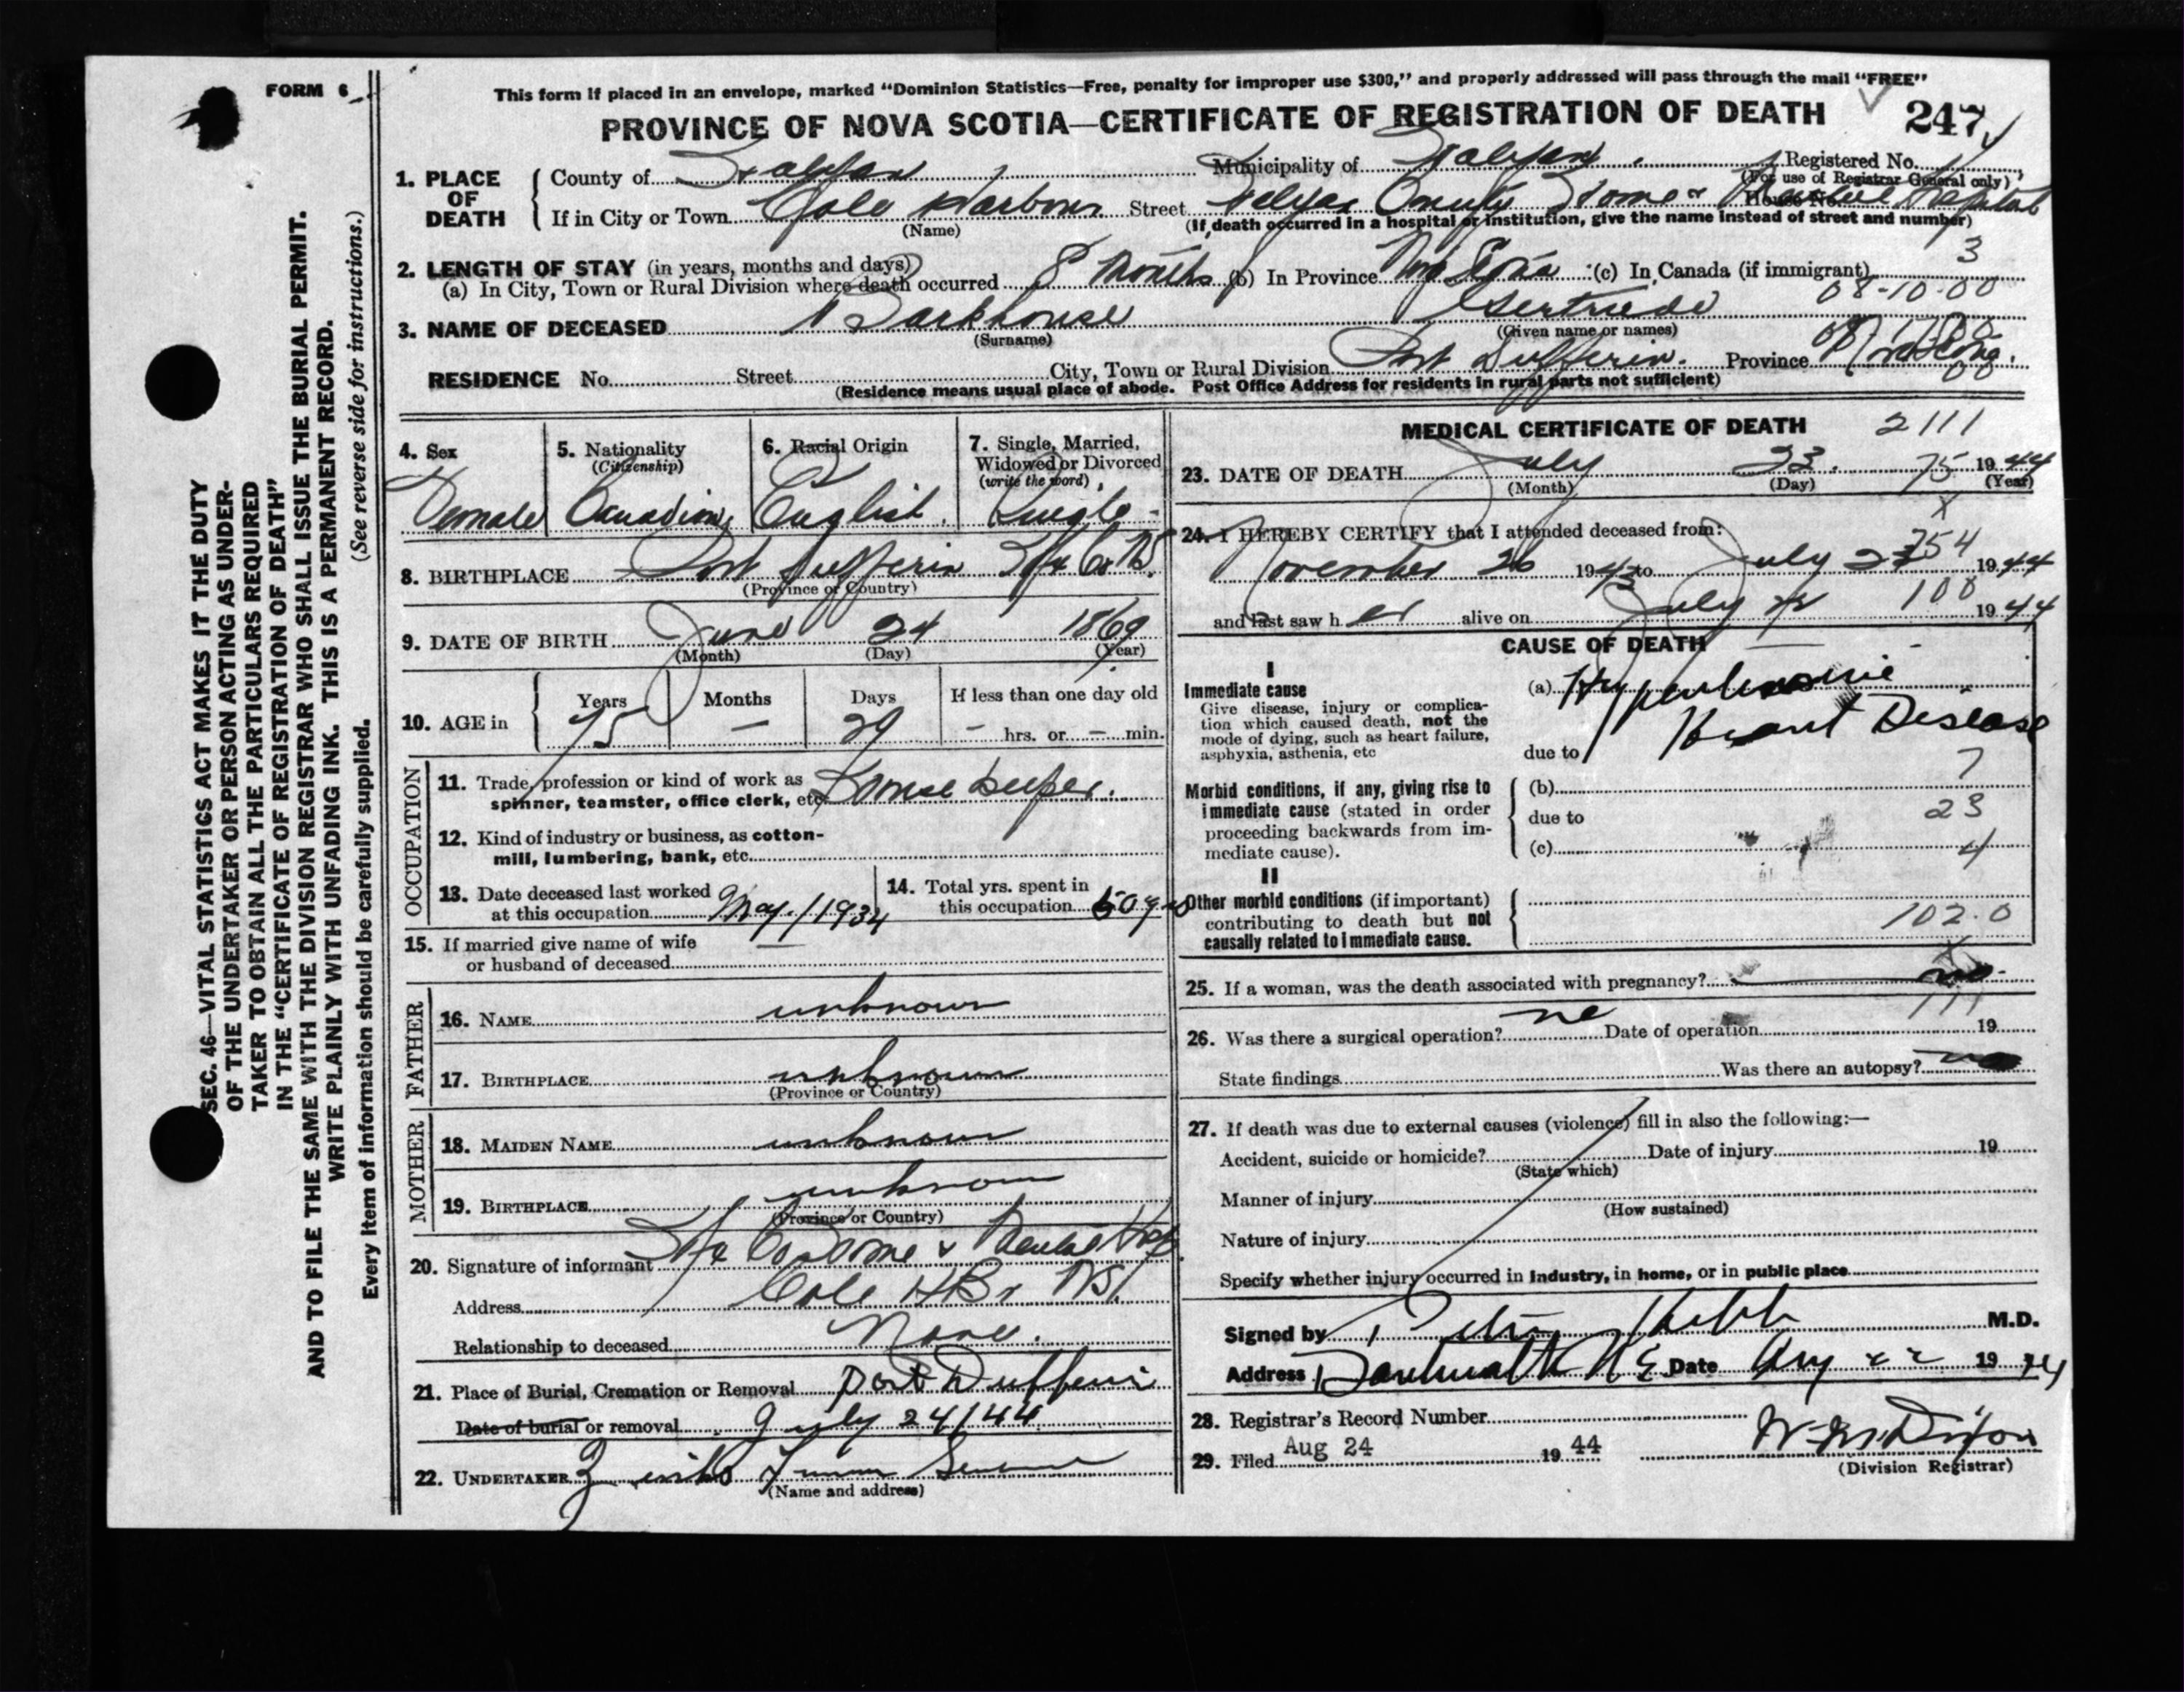 FORM 6
This form if placed in an envelope, marked "Dominion Statistics—Free, penalty for improper use $300," and properly addressed will pass through the mail "FREE"
PROVINCE OF NOVA SCOTIA—CERTIFICATE OF REGISTRATION OF DEATH 247
1. PLACE OF DEATH
County of Halifax Municipality of Halifax Registered No.
(For use of Registrar General only)
If in City or Town Cole Harbour Street Halifax County Home & Mental Hospital House No.
(Name) (If death occurred in a hospital or institution, give the name instead of street and number)
2. LENGTH OF STAY (in years, months and days) 3
(a) In City, Town or Rural Division where death occurred 8 Months (b) In Province Nova Scotia (c) In Canada (if immigrant)
08-10-00
3. NAME OF DECEASED Barkhouse Gertrude
(Surname) (Given name or names)
RESIDENCE No. Street City, Town or Rural Division Port Dufferin. Province Nova Scotia.
(Residence means usual place of abode. Post Office Address for residents in rural parts not sufficient)
4. Sex
Female
5. Nationality
(Citizenship)
Canadian
6. Racial Origin
English.
7. Single, Married,
Widowed or Divorced
(write the word)
Single
8. BIRTHPLACE Port Dufferin Hfx Co. N.S.
(Province or Country)
9. DATE OF BIRTH June 24 1869
(Month) (Day) (Year)
10. AGE in
Years Months Days If less than one day old
75 — 29 – hrs. or – min.
OCCUPATION
11. Trade, profession or kind of work as
spinner, teamster, office clerk, etc. House keeper.
12. Kind of industry or business, as cotton-
mill, lumbering, bank, etc.
13. Date deceased last worked
at this occupation May/1934
14. Total yrs. spent in
this occupation 50 yrs
15. If married give name of wife
or husband of deceased —
FATHER
16. NAME unknown
17. BIRTHPLACE unknown
(Province or Country)
MOTHER
18. MAIDEN NAME unknown
19. BIRTHPLACE unknown
(Province or Country)
20. Signature of informant Hfx Co Home & Mental Hosp.
Address Cole Hbr N.S.
Relationship to deceased None.
21. Place of Burial, Cremation or Removal Port Dufferin
Date of burial or removal July 24/44
22. UNDERTAKER
(Name and address)
MEDICAL CERTIFICATE OF DEATH 2111
23. DATE OF DEATH July 23. 75 1944
(Month) (Day) (Year)
X
24. I HEREBY CERTIFY that I attended deceased from:
354
November 26 1943 to July 23 1944
100
and last saw her alive on July 1944
CAUSE OF DEATH
I
Immediate cause
Give disease, injury or complica-
tion which caused death, not the
mode of dying, such as heart failure,
asphyxia, asthenia, etc
(a) Hypertensive
Heart Disease
due to
7
Morbid conditions, if any, giving rise to
immediate cause (stated in order
proceeding backwards from im-
mediate cause).
(b)
23
due to
(c) 4
II
Other morbid conditions (if important)
contributing to death but not
causally related to immediate cause.
102.0
X
25. If a woman, was the death associated with pregnancy? no
111
26. Was there a surgical operation? no Date of operation 19
State findings Was there an autopsy? no
27. If death was due to external causes (violence) fill in also the following:—
Accident, suicide or homicide? Date of injury 19
(State which)
Manner of injury
(How sustained)
Nature of injury
Specify whether injury occurred in industry, in home, or in public place
Signed by M.D.
Address Dartmouth N.S. Date Aug 22 1944
28. Registrar's Record Number
29. Filed Aug 24 1944 W. M. Dixon
(Division Registrar)
SEC. 46—VITAL STATISTICS ACT MAKES IT THE DUTY
OF THE UNDERTAKER OR PERSON ACTING AS UNDER-
TAKER TO OBTAIN ALL THE PARTICULARS REQUIRED
IN THE "CERTIFICATE OF REGISTRATION OF DEATH"
AND TO FILE THE SAME WITH THE DIVISION REGISTRAR WHO SHALL ISSUE THE BURIAL PERMIT.
WRITE PLAINLY WITH UNFADING INK. THIS IS A PERMANENT RECORD.
Every item of information should be carefully supplied. (See reverse side for instructions.)